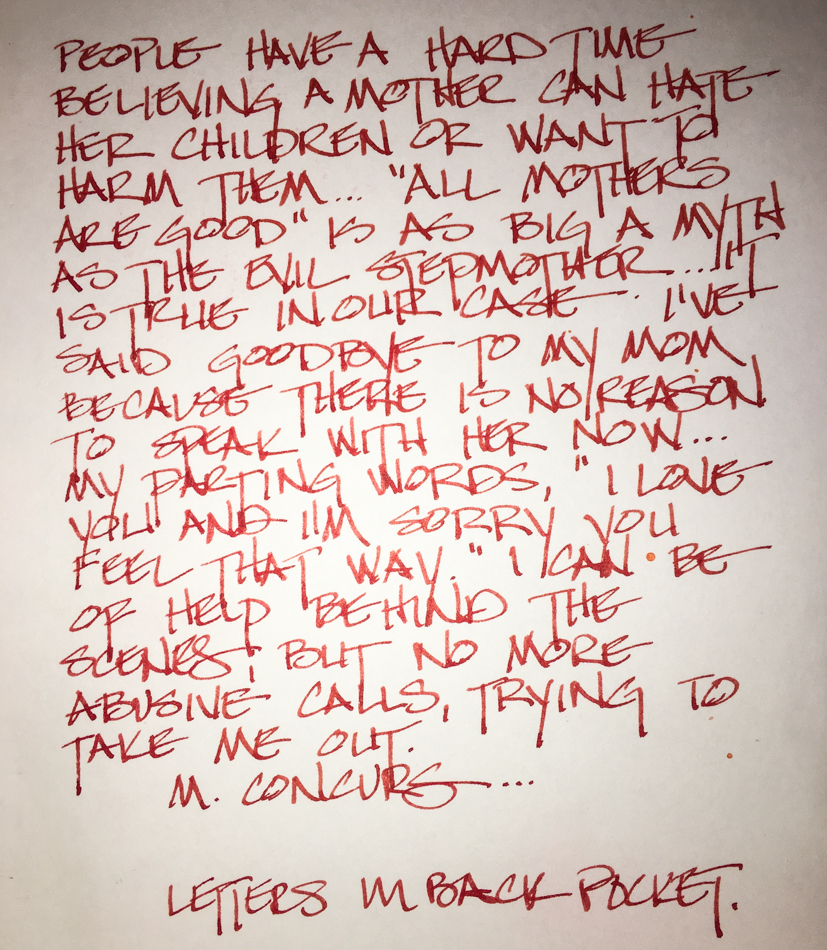 PEOPLE HAVE A HARD TIME
BELIEVING A MOTHER CAN HATE
HER CHILDREN OR WANT TO
HARM THEM... "ALL MOTHERS
ARE GOOD" IS AS BIG A MYTH
AS THE EVIL STEPMOTHER... IT
IS TRUE IN OUR CASE. I'VE
SAID GOODBYE TO MY MOM
BECAUSE THERE IS NO REASON
TO SPEAK WITH HER NOW...
MY PARTING WORDS, "I LOVE
YOU AND I'M SORRY YOU
FEEL THAT WAY." I CAN BE
OF HELP BEHIND THE
SCENES; BUT NO MORE
ABUSIVE CALLS, TRYING TO
TAKE ME OUT.
M. CONCURS...
LETTERS IN BACK POCKET.